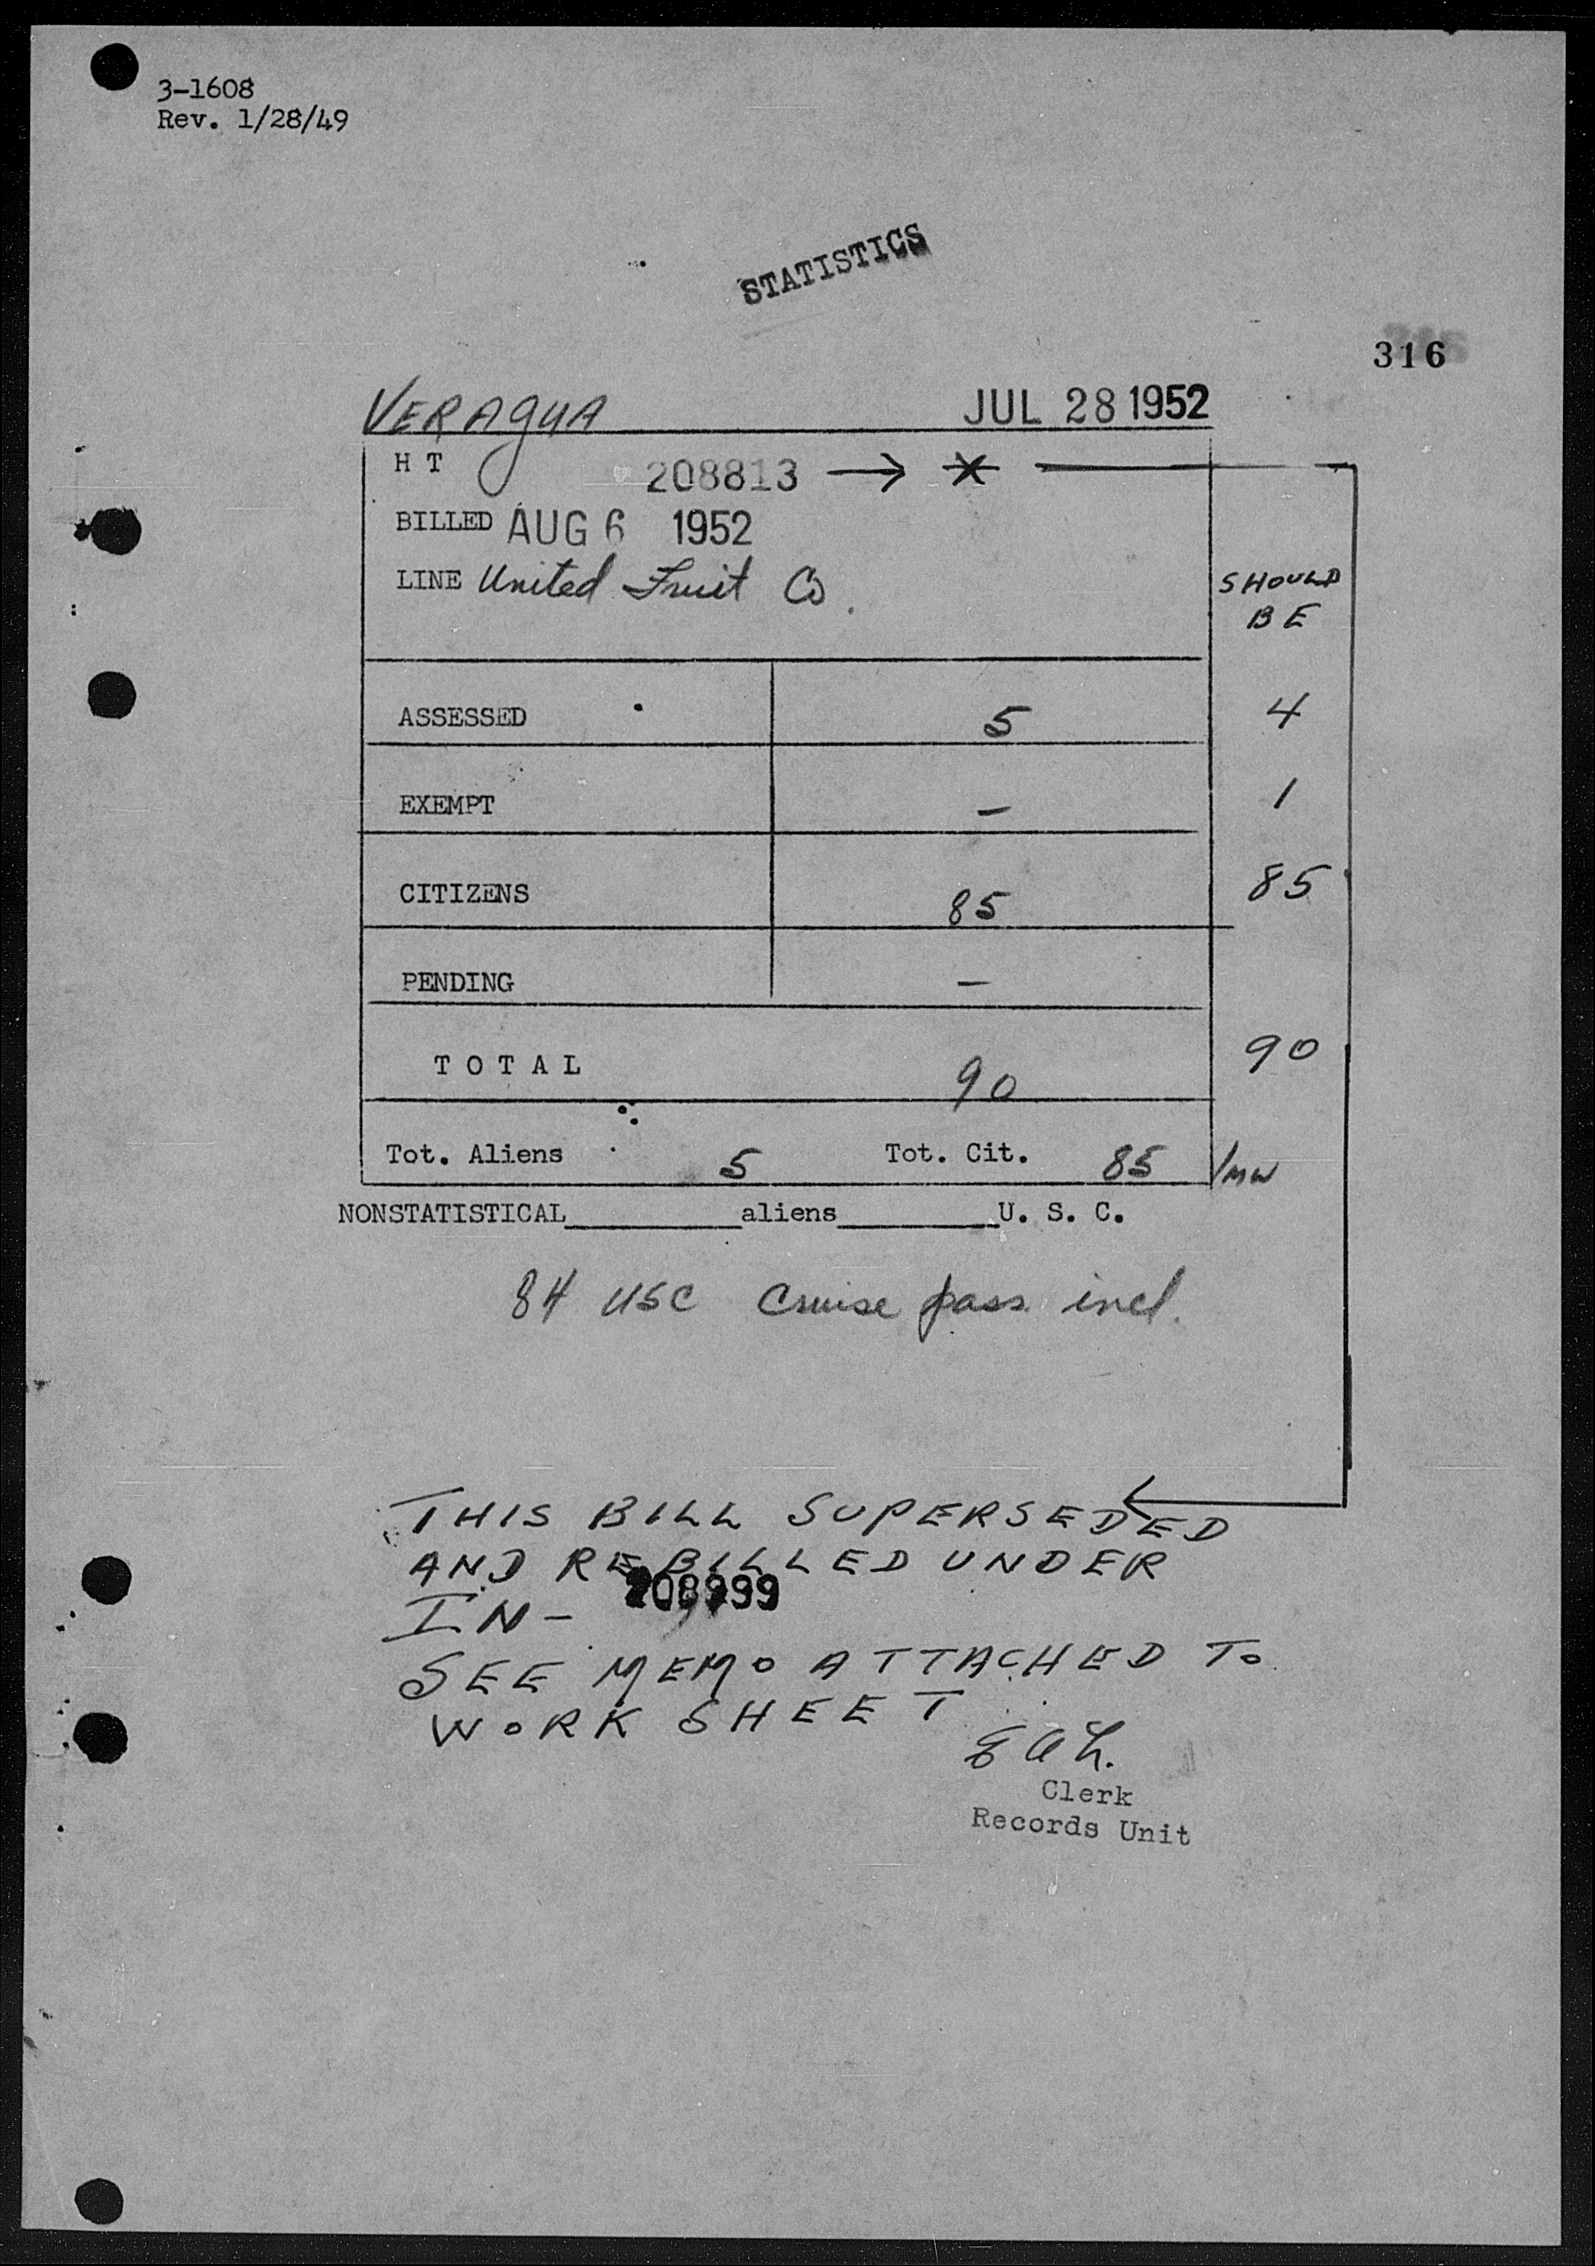 3-1608
Rev. 1/28/49
STATISTICS
316
VERAGUA JUL 28 1952
H T 208813 → X
BILLED AUG 6 1952
LINE United Fruit Co.
SHOULD
BE
ASSESSED 5 4
EXEMPT — 1
CITIZENS 85 85
PENDING —
T O T A L 90 90
Tot. Aliens 5 Tot. Cit. 85 /MW
NONSTATISTICAL aliens U. S. C.
84 USC Cruise pass. incl.
THIS BILL SUPERSEDED
AND REBILLED UNDER
IN- 208999
SEE MEMO ATTACHED TO
WORK SHEET
Clerk
Records Unit